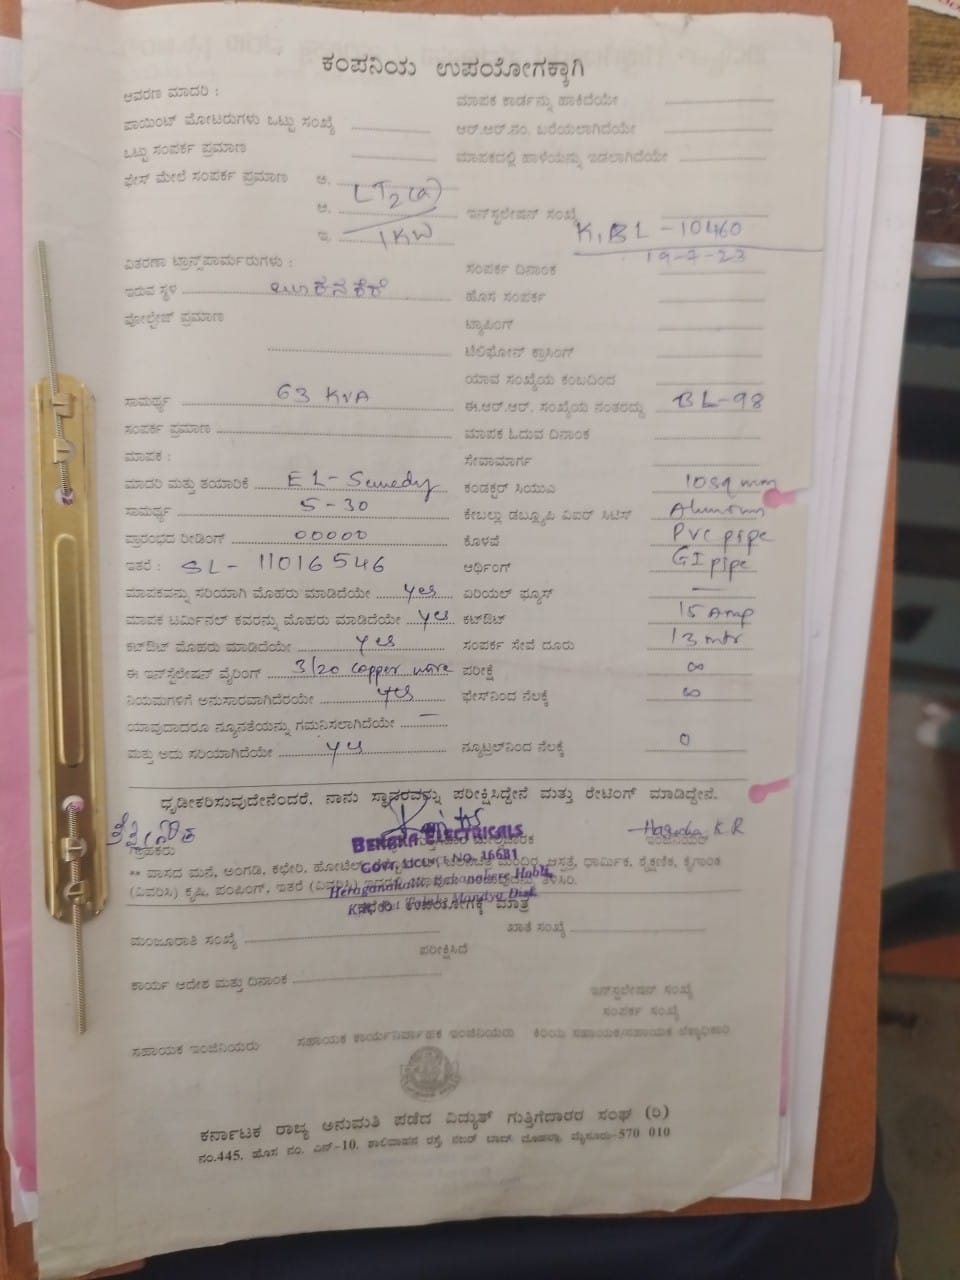 ಕಂಪನಿಯ ಉಪಯೋಗಕ್ಕಾಗಿ
ಆವರಣ ಮಾದರಿ : ಮಾಪಕ ಕಾರ್ಡನ್ನು ಹಾಕಿದೆಯೇ
ಪಾಯಿಂಟ್ ಮೋಟರುಗಳು ಒಟ್ಟು ಸಂಖ್ಯೆ ಆರ್.ಆರ್.ನಂ. ಬರೆಯಲಾಗಿದೆಯೇ
ಒಟ್ಟು ಸಂಪರ್ಕ ಪ್ರಮಾಣ ಮಾಪಕದಲ್ಲಿ ಹಾಳೆಯನ್ನು ಇಡಲಾಗಿದೆಯೇ
ಫೇಸ್ ಮೇಲೆ ಸಂಪರ್ಕ ಪ್ರಮಾಣ ಅ. LT2(a)
ಆ. ಇನ್‌ಸ್ಟಲೇಷನ್ ಸಂಖ್ಯೆ K,BL-10460
ಇ. 1KW 19-7-23
ವಿತರಣಾ ಟ್ರಾನ್ಸ್‌ಪಾರ್ಮರುಗಳು : ಸಂಪರ್ಕ ದಿನಾಂಕ
ಇರುವ ಸ್ಥಳ ಹೊಸ ಸಂಪರ್ಕ
ವೋಲ್ಟೇಜ್ ಪ್ರಮಾಣ ಟ್ಯಾಪಿಂಗ್
ಟೆಲಿಫೋನ್ ಕ್ರಾಸಿಂಗ್
ಯಾವ ಸಂಖ್ಯೆಯ ಕಂಬದಿಂದ
ಸಾಮರ್ಥ್ಯ 63 KVA ಈ.ಆರ್.ಆರ್. ಸಂಖ್ಯೆಯ ನಂತರದ್ದು BL-98
ಸಂಪರ್ಕ ಪ್ರಮಾಣ ಮಾಪಕ ಓದುವ ದಿನಾಂಕ
ಮಾಪಕ : ಸೇವಾಮಾರ್ಗ
ಮಾದರಿ ಮತ್ತು ತಯಾರಿಕೆ EL- ಕಂಡಕ್ಟರ್ ಸಿಯುಎ 10sq mm
ಸಾಮರ್ಥ್ಯ 5-30 ಕೇಬಲ್ಲು ಡಬ್ಲ್ಯೂಪಿ ವಿಐರ್ ಸಿಟಿಸ್
ಪ್ರಾರಂಭದ ರೀಡಿಂಗ್ 00000 ಕೊಳವೆ PVC pipe
ಇತರೆ : SL- 11016546 ಅರ್ಥಿಂಗ್ GI pipe
ಮಾಪಕವನ್ನು ಸರಿಯಾಗಿ ಮೊಹರು ಮಾಡಿದೆಯೇ yes ಏರಿಯಲ್ ಫ್ಯೂಸ್ —
ಮಾಪಕ ಟರ್ಮಿನಲ್ ಕವರನ್ನು ಮೊಹರು ಮಾಡಿದೆಯೇ yes ಕಟ್‌ಔಟ್ 15 Amp
ಕಟ್‌ಔಟ್ ಮೊಹರು ಮಾಡಿದೆಯೇ yes ಸಂಪರ್ಕ ಸೇವೆ ದೂರು 13 mtr
ಈ ಇನ್‌ಸ್ಟಲೇಷನ್ ವೈರಿಂಗ್ 3/20 copper wire ಪರೀಕ್ಷೆ ∞
ನಿಯಮಗಳಿಗೆ ಅನುಸಾರವಾಗಿದೆರಯೇ yes ಫೇಸ್‌ನಿಂದ ನೆಲಕ್ಕೆ ∞
ಯಾವುದಾದರೂ ನ್ಯೂನತೆಯನ್ನು ಗಮನಿಸಲಾಗಿದೆಯೇ —
ಮತ್ತು ಅದು ಸರಿಯಾಗಿದೆಯೇ yes ನ್ಯೂಟ್ರಲ್‌ನಿಂದ ನೆಲಕ್ಕೆ 0
ಧೃಡೀಕರಿಸುವುದೇನೆಂದರೆ, ನಾನು ಸ್ಥಾವರವನ್ನು ಪರೀಕ್ಷಿಸಿದ್ದೇನೆ ಮತ್ತು ರೇಟಿಂಗ್ ಮಾಡಿದ್ದೇನೆ.
K.R
ಗ್ರಾಹಕರು ಇಂಜಿನಿಯರ್
BENAKA ELECTRICALS
GOVT. LICL. NO. 16681
** ವಾಸದ ಮನೆ, ಅಂಗಡಿ, ಕಛೇರಿ, ಹೋಟೆಲ್, ಮಂದಿರ, ಆಸ್ಪತ್ರೆ, ಧಾರ್ಮಿಕ, ಶೈಕ್ಷಣಿಕ, ಕೈಗಾರಿಕ
(ವಿವರಿಸಿ) ಕೃಷಿ, ಪಂಪಿಂಗ್, ಇತರೆ ತಿಳಿಸಿರಿ.
Hobli,
Mandya Dist.
ಕಛೇರಿ ಉಪಯೋಗಕ್ಕೆ ಮಾತ್ರ
ಮಂಜೂರಾತಿ ಸಂಖ್ಯೆ ಖಾತೆ ಸಂಖ್ಯೆ
ಪರೀಕ್ಷಿಸಿದೆ
ಕಾರ್ಯ ಆದೇಶ ಮತ್ತು ದಿನಾಂಕ
ಇನ್‌ಸ್ಟಲೇಷನ್ ಸಂಖ್ಯೆ
ಸಂಪರ್ಕ ಸಂಖ್ಯೆ
ಸಹಾಯಕ ಇಂಜಿನಿಯರು ಸಹಾಯಕ ಕಾರ್ಯನಿರ್ವಾಹಕ ಇಂಜಿನಿಯರು ಕಿರಿಯ ಸಹಾಯಕ/ಸಹಾಯಕ ಲೆಕ್ಕಾಧಿಕಾರಿ
ಕರ್ನಾಟಕ ರಾಜ್ಯ ಅನುಮತಿ ಪಡೆದ ವಿದ್ಯುತ್ ಗುತ್ತಿಗೆದಾರರ ಸಂಘ (ರಿ)
ನಂ.445, ಹೊಸ ನಂ. ಎನ್-10, ಶಾಲಿವಾಹನ ರಸ್ತೆ, ನಜರ್ ಬಾದ್ ಮೊಹಲ್ಲಾ, ಮೈಸೂರು-570 010